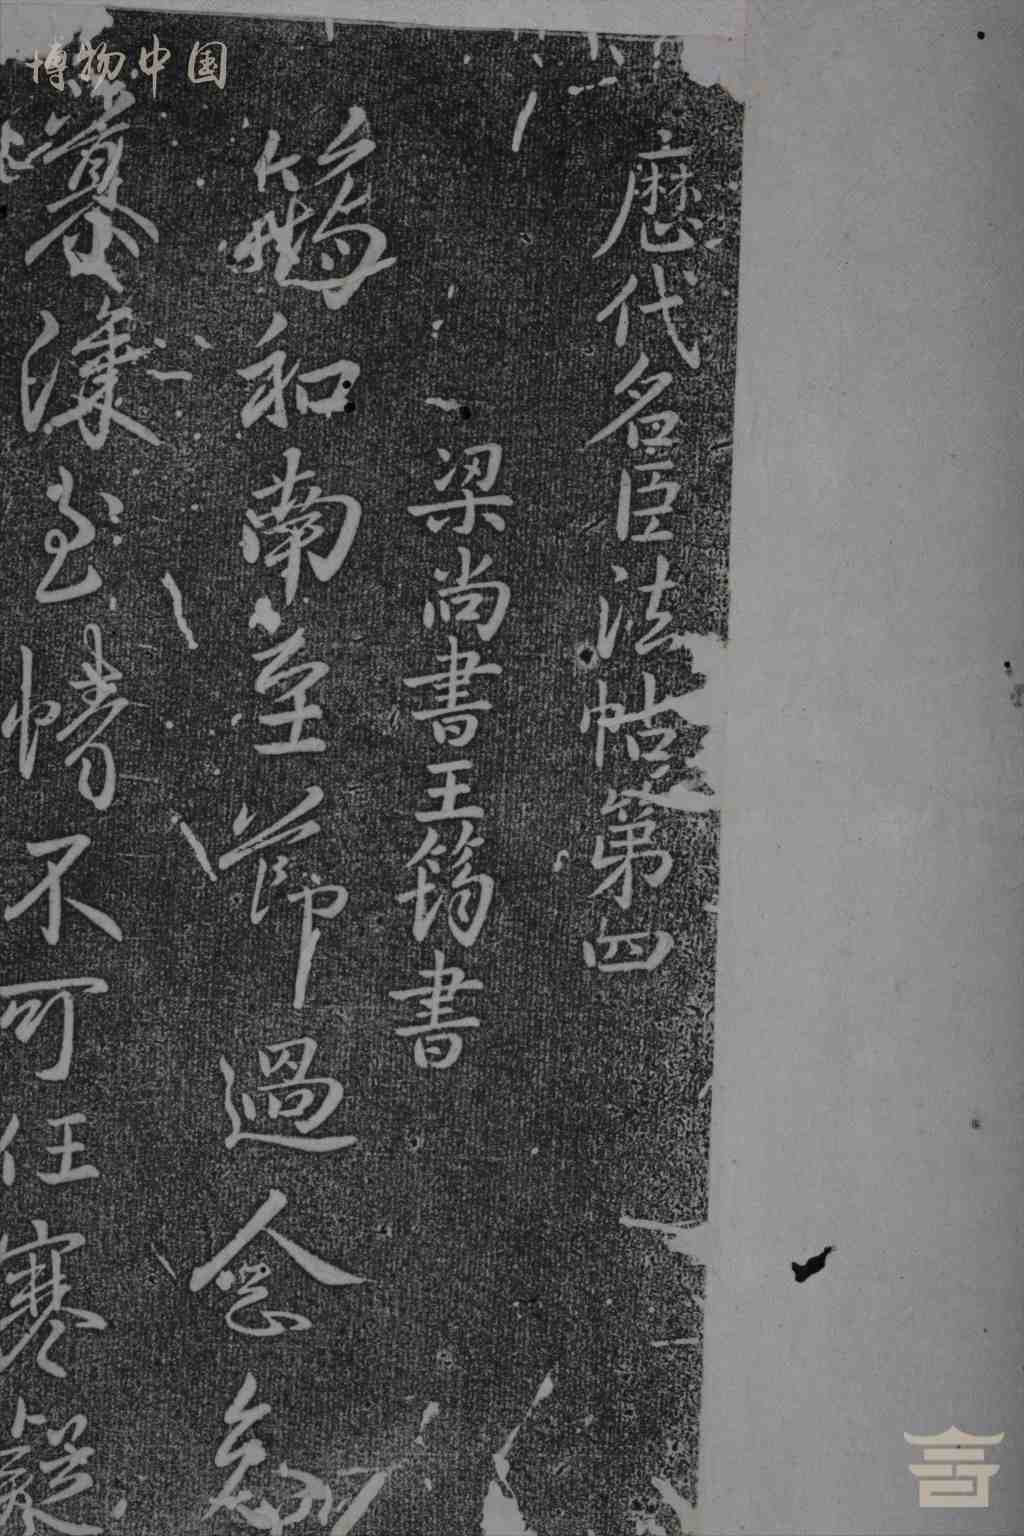 博物中国
歷代名臣法帖第四
梁尚書王筠書
筠和南至節過念
深至情不可任寒凝